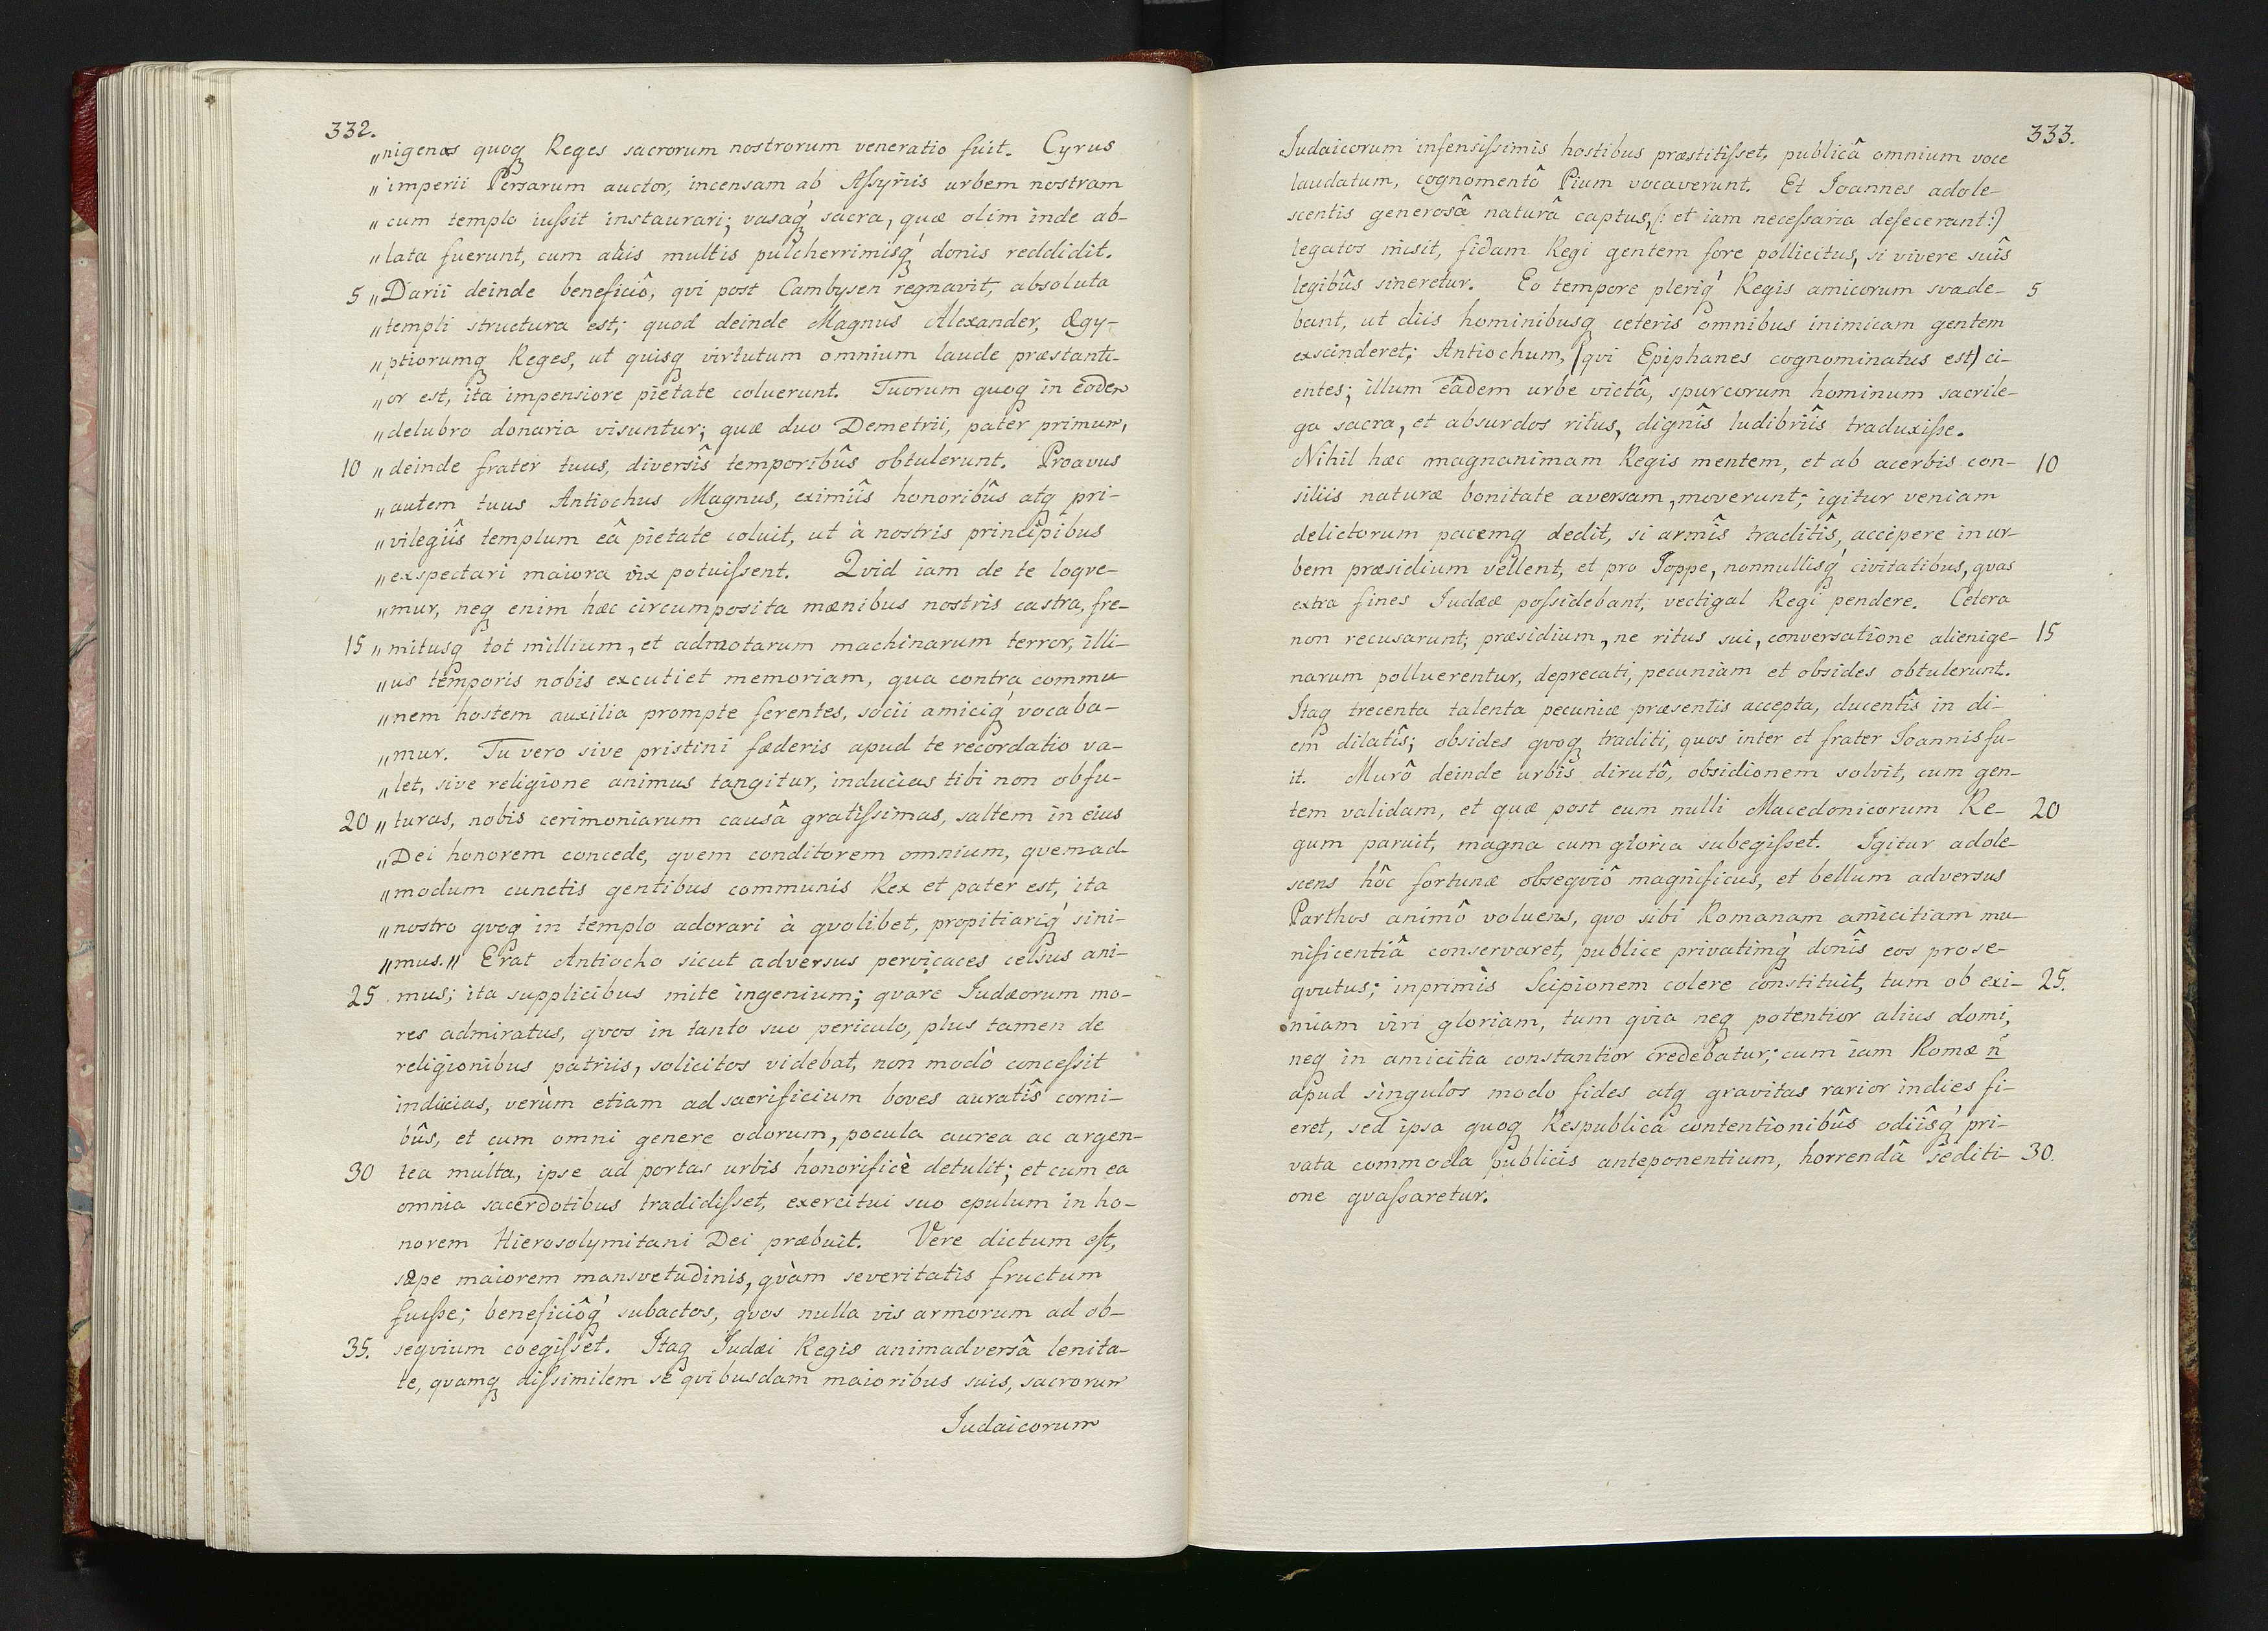 332.
„nigenas quoq Reges sacrorum nostrorum veneratio fuit. Cyrus
„imperii Persarum auctor, incensam ab Aſsyriis urbem nostram
„cum templo iuſsit instaurari; vasaq́ sacra, quæ olim inde ab-
„lata fuerunt, cum aliis multis pulcherrimisq́ donis reddidit.
5 „Darii deinde beneficiô, qvi post Cambysen regnavit, absoluta
„templi structura est; quod deinde Magnus Alexander, Ægy-
„ptiorumq Reges, ut quisq virtutum omnium laude præstanti-
„or est, ita impensiore pietate coluerunt. Tuorum quoq in eodem
„delubro donaria visuntur; quæ duo Demetrii, pater primum,
10 „deinde frater tuus, diversîs temporibûs obtulerunt. Proavus
„autem tuus Antiochus Magnus, eximiîs honoribûs atq pri-
„vilegiîs templum eâ pietate coluit, ut à nostris principibus
„exspectari maiora vix potuiſsent. Qvid iam de te loqve-
„mur, neq enim hæc circumposita mœnibus nostris castra, fre-
15 „mitusq tot millium, et admotarum machinarum terror, illi-
„us temporis nobis excutiet memoriam, qua contra commu
„nem hostem auxilia prompte ferentes, socii amiciq́ vocaba-
„mur. Tu vero sive pristini fœderis apud te recordatio va-
„let, sive religione animus tangitur, inducias tibi non obfu-
20 „turas, nobis cerimoniarum causâ gratiſsimas, saltem in eius
„Dei honorem concede, qvem conditorem omnium, qvemad-
„modum cunctis gentibus communis Rex et pater est, ita
„nostro qvoq in templo adorari à qvolibet, propitiariq́ sini-
„mus.„ Erat Antiocho sicut adversus pervicaces celsus ani-
25 mus; ita supplicibus mite ingenium; qvare Iudæorum mo-
res admiratus, qvos in tanto suo periculo, plus tamen de
religionibus patriis, solicitos videbat, non modò conceſsit
inducias, verùm etiam ad sacrificium boves auratîs corni-
bûs, et cum omni genere odorum, pocula aurea ac argen-
30 tea multa, ipse ad portas urbis honorificè detulit; et cum ea
omnia sacerdotibus tradidiſset, exercitui suo epulum in ho-
norem Hierosolymitani Dei præbuit. Vere dictum eſt,
sæpe maiorem mansvetudinis, qvàm severitatis fructum
fuiſse; beneficiôq́ subactos, qvos nulla vis armorum ad ob-
35. seqvium coegiſset. Itaq Iudæi Regis animadversâ lenita-
te, qvamq diſsimilem se qvibusdam maioribus suis, sacrorum
Iudaicorum
333.
Iudaicorum infensiſsimis hostibus præstitiſset, publicâ omnium voce
laudatum, cognomentô Pium vocaverunt. Et Ioannes adole-
scentis generosâ naturâ captus, (: et iam neceſsaria defecerant:)
legatos misit, fidam Regi gentem fore pollicitus, si vivere suîs
legibûs sineretur. Eo tempore pleriq́ Regis amicorum svade- 5
bant, ut diis hominibusq ceteris omnibus inimicam gentem
exscinderet; Antiochum, (qvi Epiphanes cognominatus est) ci-
entes; illum eâdem urbe victâ, spurcorum hominum sacrile-
ga sacra, et absurdos ritus, dignîs ludibriîs traduxiſse.
Nihil hæc magnanimam Regis mentem, et ab acerbis con- 10
siliis naturæ bonitate aversam, moverunt; igitur veniam
delictorum pacemq dedit, si armîs traditîs, accipere in ur-
bem præsidium vellent, et pro Ioppe, nonnullisq́ civitatibus, qvas
extra fines Iudææ poſsidebant, vectigal Regi pendere. Cetera
non recusarunt; præsidium, ne ritus sui, conversatione alienige- 15
narum polluerentur, deprecati, pecuniam et obsides obtulerunt.
Itaq trecenta talenta pecuniæ præsentis accepta, ducentîs in di-
em dilatîs; obsides qvoq traditi, quos inter et frater Ioannis fu-
it. Murô deinde urbis dirutô, obsidionem solvit, cum gen-
tem validam, et quæ post eum nulli Macedonicorum Re- 20
gum paruit, magna cum gloria subegiſset. Igitur adole-
scens hôc fortunæ obseqviô magnificus, et bellum adversus
Parthos animô voluens, qvo sibi Romanam amicitiam mu-
nificentiâ conservaret, publice privatimq́ donîs eos prose-
qvutus; inprimis Scipionem colere constituit, tum ob exi- 25.
miam viri gloriam, tum qvia neq potentior alius domi,
neq in amicitia constantior credebatur; cum iam Romæ n̄
apud singulos modo fides atq gravitas rarior indies fi-
eret, sed ipsa quoq Respublica contentionibûs odiîsq́ pri-
vata commoda publicis anteponentium, horrendâ sediti- 30.
one qvaſsaretur.